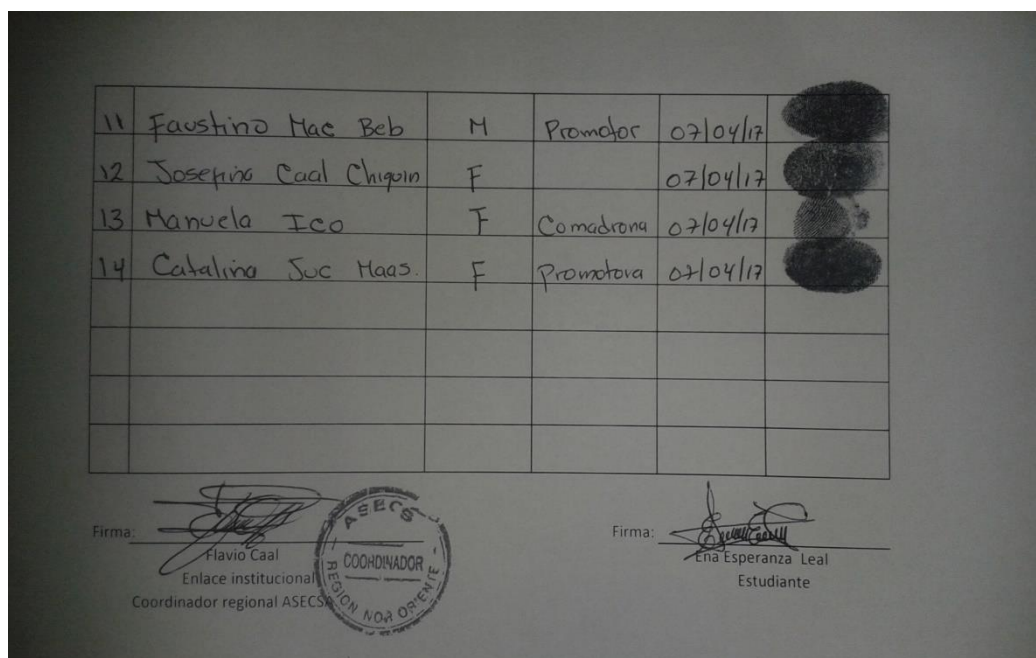 11 Faustino Mac Beb M Promotor 07/04/17
12 Josefina Caal Chiquin F 07/04/17
13 Manuela Ico F Comadrona 07/04/17
14 Catalina Juc Maas. F Promotora 07/04/17
Firma:
Flavio Caal
Enlace institucional
Coordinador regional ASECSA
ASECSA
COORDINADOR
REGION NOR ORIENTE
Firma:
Ena Esperanza Leal
Estudiante